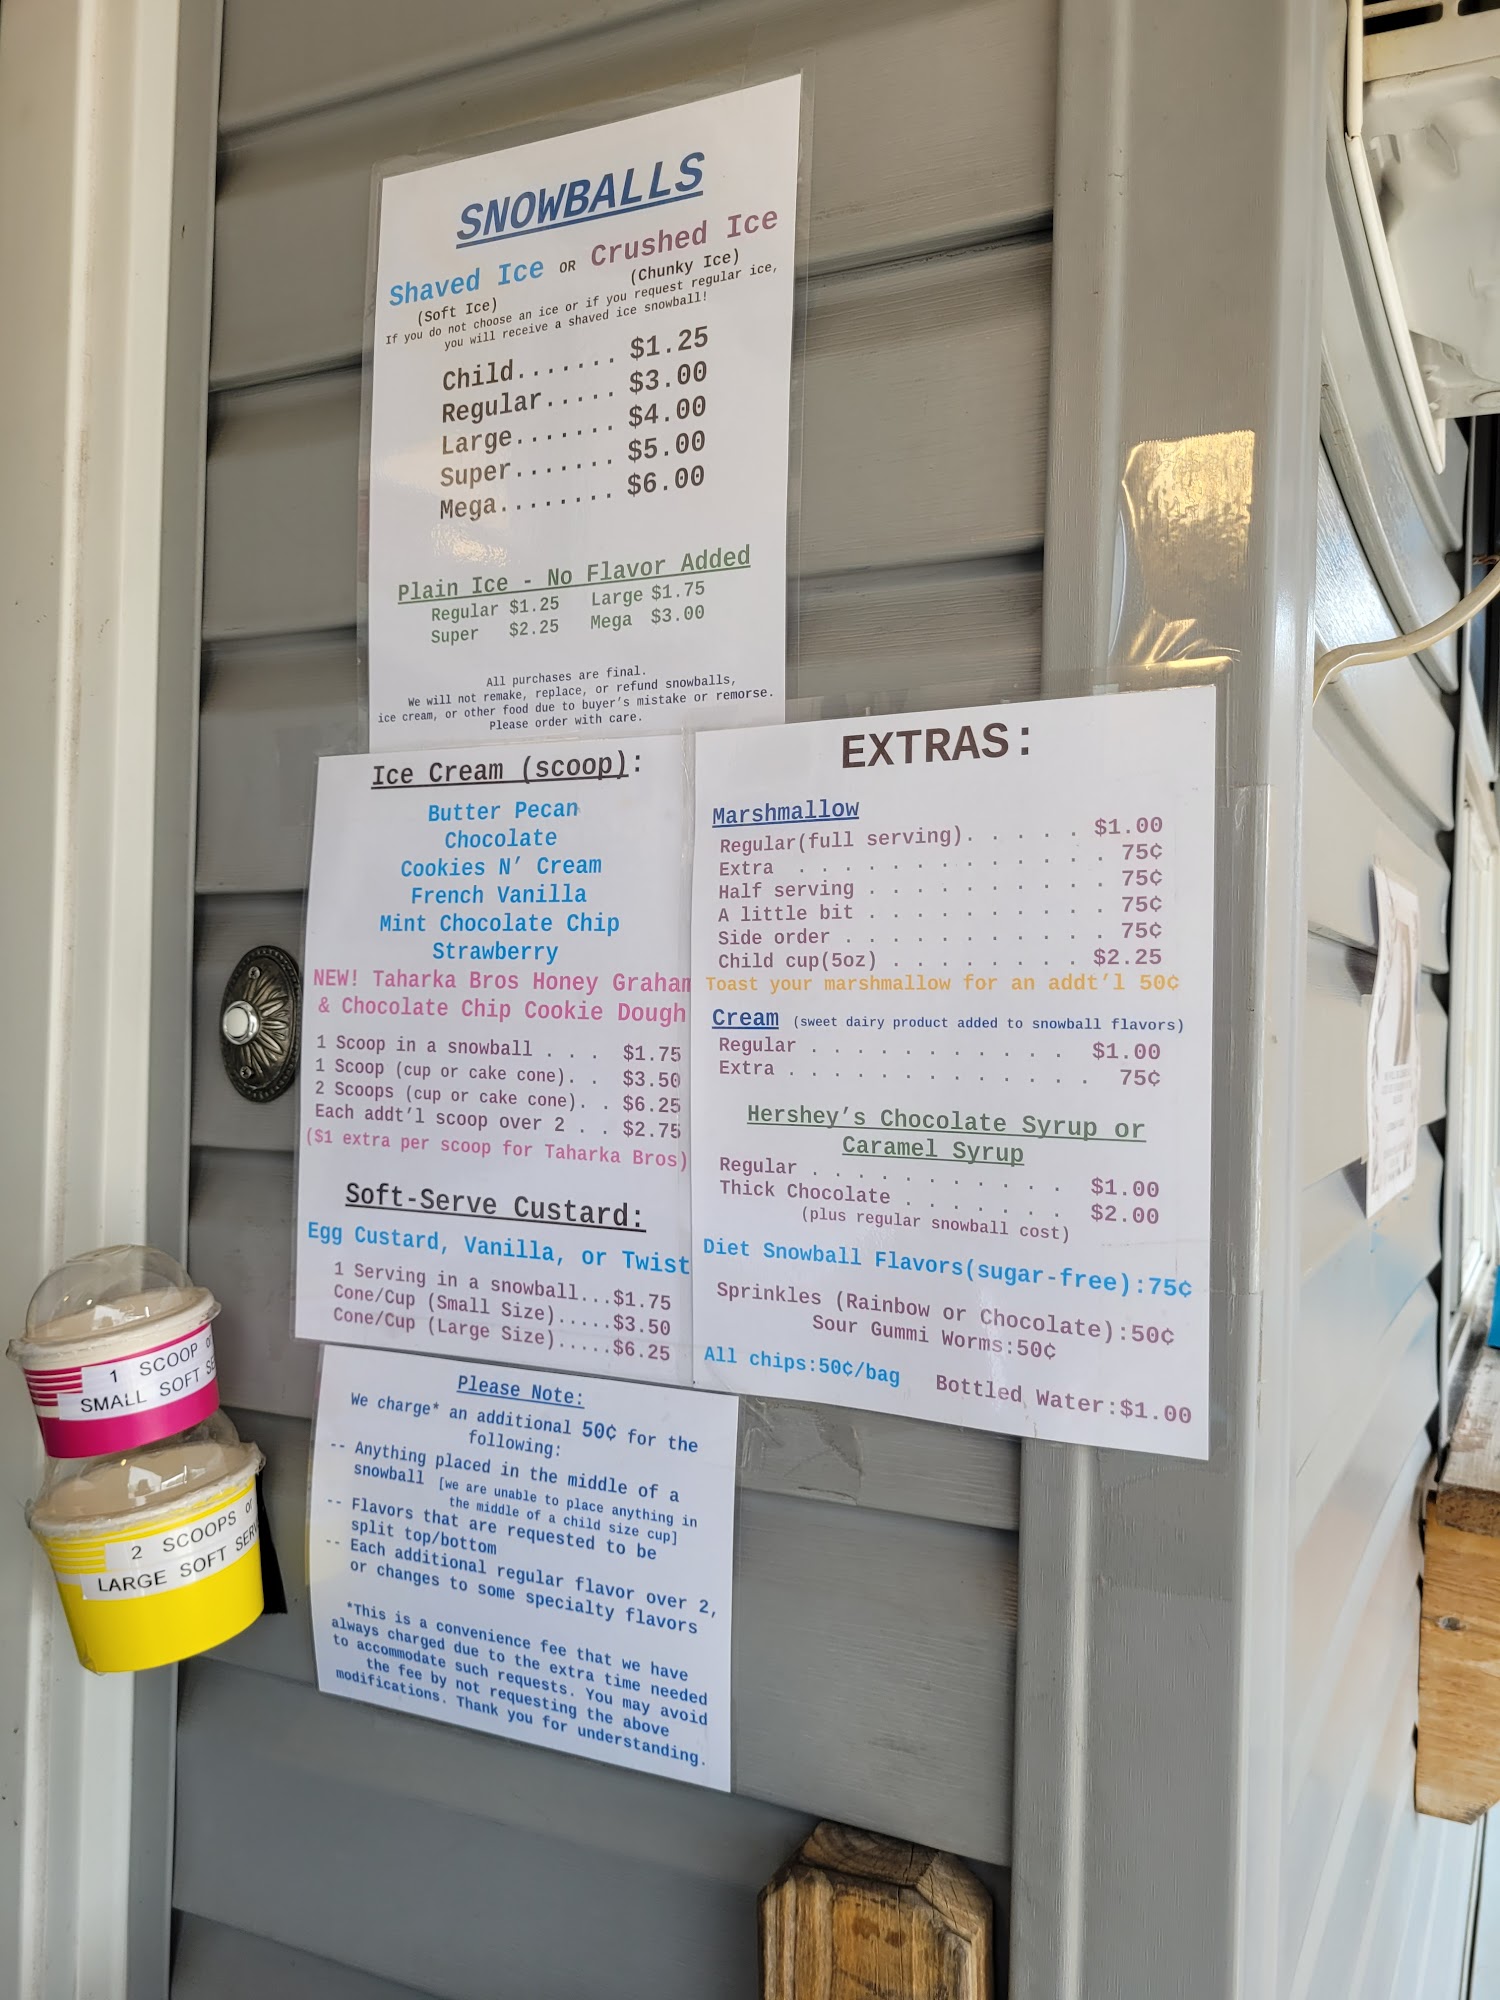 SNOWBALLS
Shaved Ice OR Crushed Ice
(Soft Ice) (Chunky Ice)
If you do not choose an ice or if you request regular ice,
you will receive a shaved ice snowball!
Child....... $1.25
Regular..... $3.00
Large....... $4.00
Super....... $5.00
Mega........ $6.00
Plain Ice - No Flavor Added
Regular $1.25 Large $1.75
Super $2.25 Mega $3.00
All purchases are final.
We will not remake, replace, or refund snowballs,
ice cream, or other food due to buyer's mistake or remorse.
Please order with care.
Ice Cream (scoop):
Butter Pecan
Chocolate
Cookies N' Cream
French Vanilla
Mint Chocolate Chip
Strawberry
NEW! Taharka Bros Honey Graham
& Chocolate Chip Cookie Dough
1 Scoop in a snowball . . . $1.75
1 Scoop (cup or cake cone). . $3.50
2 Scoops (cup or cake cone). . $6.25
Each addt'l scoop over 2 . . $2.75
($1 extra per scoop for Taharka Bros)
Soft-Serve Custard:
Egg Custard, Vanilla, or Twist
1 Serving in a snowball...$1.75
Cone/Cup (Small Size).....$3.50
Cone/Cup (Large Size).....$6.25
EXTRAS:
Marshmallow
Regular(full serving). . . . . $1.00
Extra . . . . . . . . . . . . 75¢
Half serving . . . . . . . . . 75¢
A little bit . . . . . . . . . 75¢
Side order . . . . . . . . . . 75¢
Child cup(5oz) . . . . . . . . $2.25
Toast your marshmallow for an addt'l 50¢
Cream (sweet dairy product added to snowball flavors)
Regular . . . . . . . . . . . $1.00
Extra . . . . . . . . . . . . . 75¢
Hershey's Chocolate Syrup or
Caramel Syrup
Regular . . . . . . . . . . . $1.00
Thick Chocolate . . . . . . . $2.00
(plus regular snowball cost)
Diet Snowball Flavors(sugar-free):75¢
Sprinkles (Rainbow or Chocolate):50¢
Sour Gummi Worms:50¢
All chips:50¢/bag
Bottled Water:$1.00
Please Note:
We charge* an additional 50¢ for the
following:
-- Anything placed in the middle of a
snowball [we are unable to place anything in
the middle of a child size cup]
-- Flavors that are requested to be
split top/bottom
-- Each additional regular flavor over 2,
or changes to some specialty flavors
*This is a convenience fee that we have
always charged due to the extra time needed
to accommodate such requests. You may avoid
the fee by not requesting the above
modifications. Thank you for understanding.
1 SCOOP or
SMALL SOFT
2 SCOOPS or
LARGE SOFT